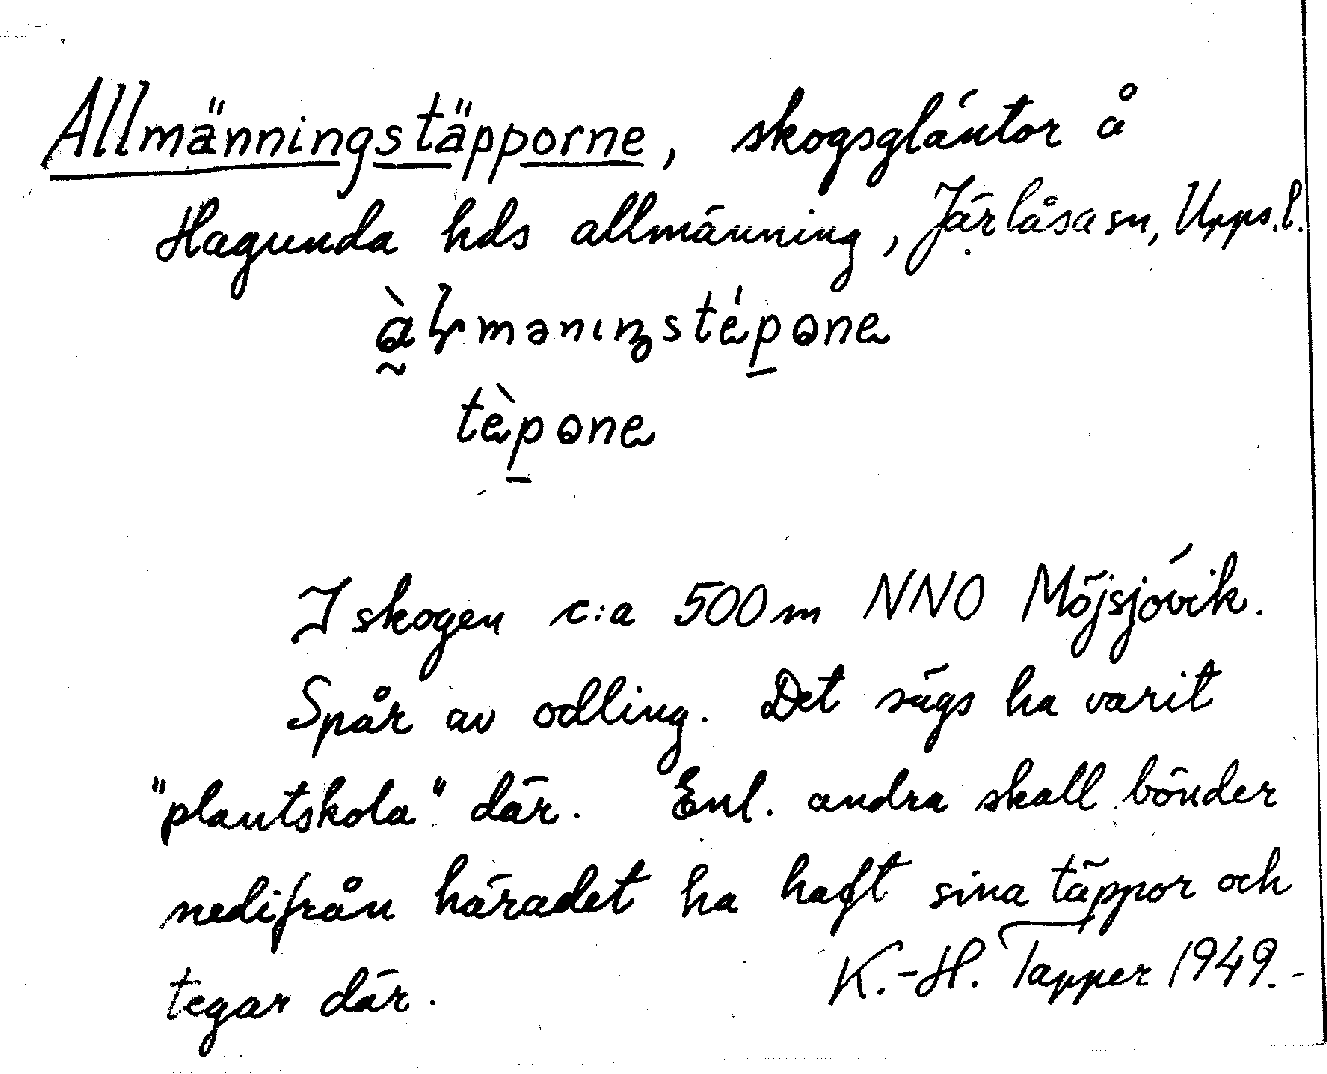 Allmänningstäpporne, skogsgläntor å
Hagunda hds allmänning, Järlåsa sn, Upps. l.
tèpone
I skogen c:a 500 m NNO Möjsjövik.
Spår av odling. Det sägs ha varit
"plantskola" där. Enl. andra skall bönder
nedifrån häradet ha haft sina täppor och
tegar där.
K.-H. Tapper 1949.-